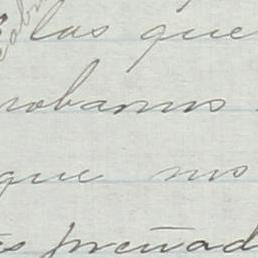 las que
robamos
que nos
es preñad